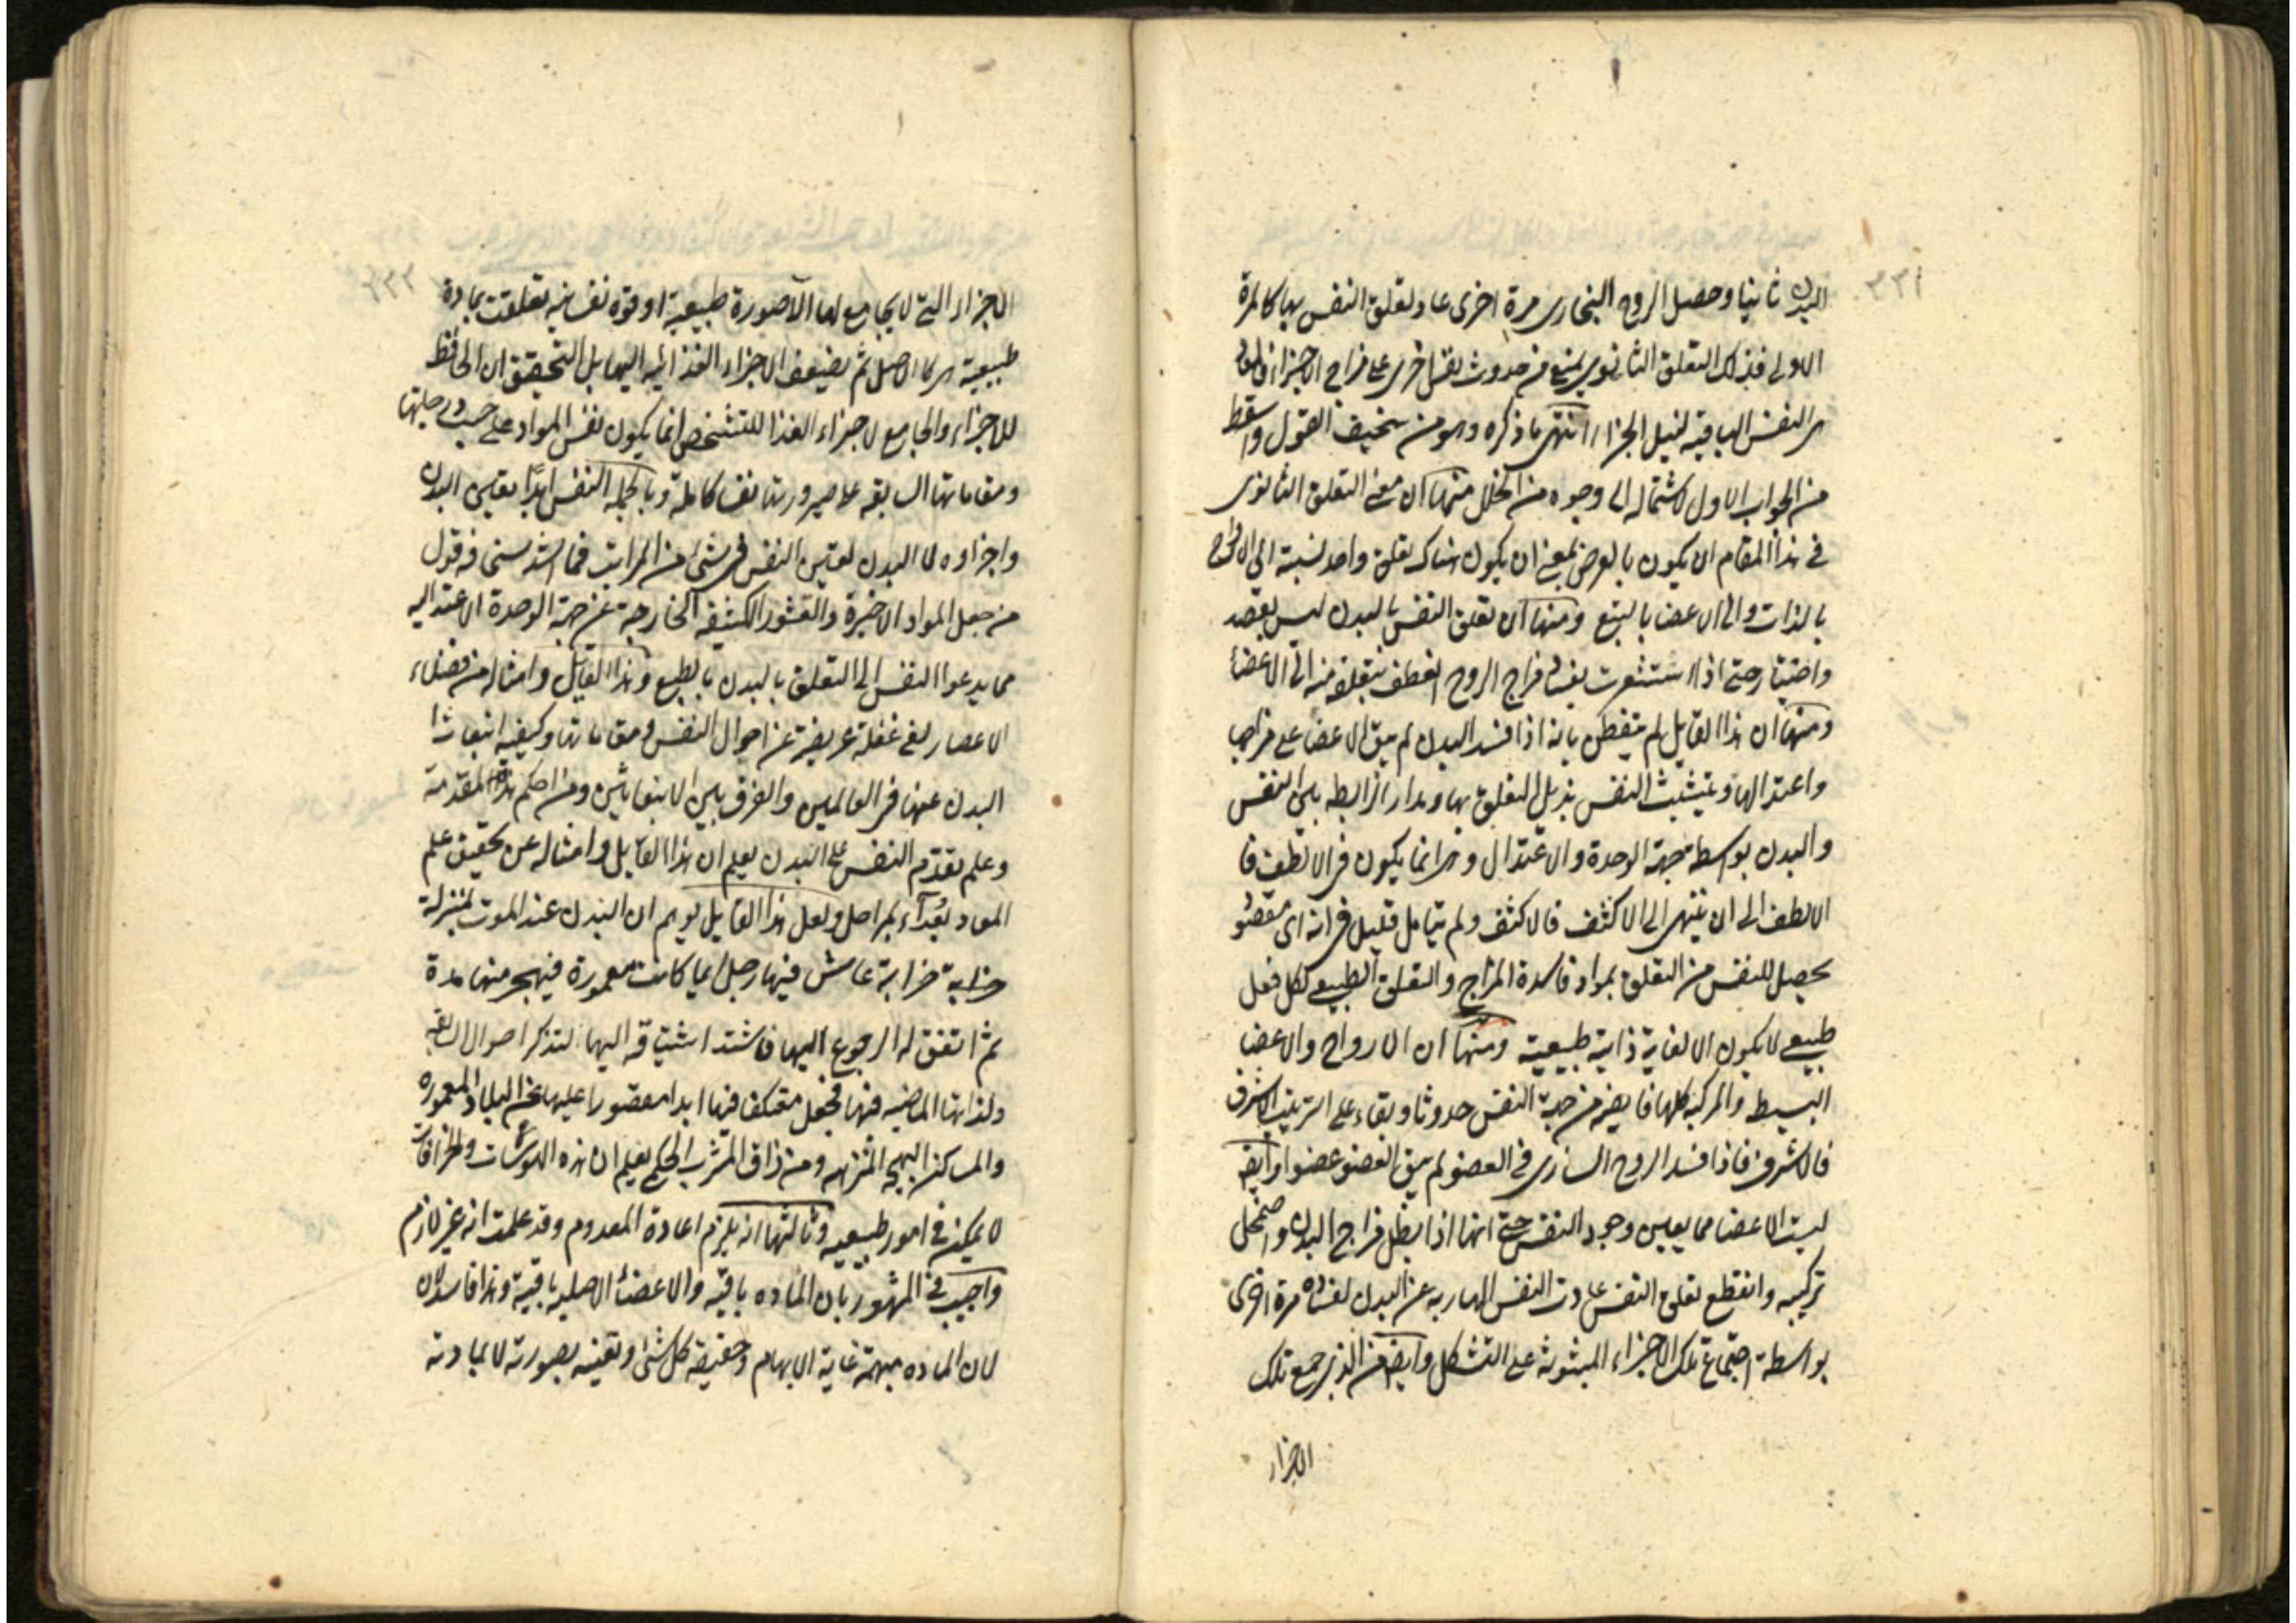 ٣٣١
البدن ثانيا وحصل الروح البخارى مرة اخرى عاد تعلق النفس بها كالمرة
الاولى فذلك التعلق الثانوى يمنع من حدوث نفس اخرى على مزاج الاجزاء فالمعاد
هى النفس الباقيه لنيل الجزاء انتهى ما ذكره وهو من سخيف القول واسقط
من الجواب الاول لاشتماله الى وجوه من الخلل منها ان معنى التعلق الثانوى
فى هذا المقام ان يكون بالعرض بمعنى ان يكون هناك تعلق واحد لنسبة الى الارواح
بالذات والى الاعضا بالتبع ومنها ان تعلق النفس بالبدن ليس بقصد
واختيار حتى اذا استشعرت بفساد مزاج الروح انعطف بتعلقه منه الى الاعضاء
ومنها ان هذا القايل لم يتفطن بانه اذا فسد البدن لم يبق الاعضا على مزاجها
واعتدالها وتشبث النفس بذيل التعلق بها ومدار الرابطه بين النفس
والبدن بواسطه جهة الوحدة والاعتدال وهى انما يكون فى الالطف فا
الالطف الى ان ينتهى الى الاكثف فالاكثف ولم يتامل قليل فى انه اى مقصود
يحصل للنفس من التعلق بمواد فاسدة المزاج والتعلق الطبيعى ككل فعل
طبيعى لا يكون الا لغاية ذاتية طبيعية ومنها ان الارواح والاعضا
البسيط والمركبه كلها فايضه من جهة النفس حدوثا وبقاء على الترتيب الاشرف
فالاشرف فاذا فسد الروح السارى فى العضو لم يبق العضو عضوا وايضا
ليست الاعضا مما يعين وجود النفس حتى انها اذا بطل مزاج البدن واضمحل
تركيبه وانقطع تعلق النفس عادت النفس الهاربه عن البدن لفساده مرة اخرى
بواسطة اجتماع تلك الاجزاء المبثوثة على التشكل وايضا من الذى جمع تلك
الاجزاء
٣٣٢
الاجزاء التى لا يجامع لها الا صورة طبيعية او قوة نفسانيه تعلقت بمادة
طبيعية هى كالاصل ثم يضيف الاجزاء الغذائيه اليها بل التحقيق ان الحافظ
للاجزاء والجامع لاجزاء الغذا للتشخص انما يكون نفس المواد على حسب درجاتها
ومقاماتها السابقه على صيرورتها نفسا كاملة وبالجمله النفس ابدًا يعين البدن
واجزاوه لا البدن لعين النفس فى شئ من المراتب فما اشد سخافه قول
من جعل المواد الاخيرة والقشور الكثيفه الخارجة عن جهة الوحدة الاعتداليه
مما يدعوا النفس الى التعلق بالبدن بالطبع وهذا القايل وامثاله من فضلاء
الاعصار لفى غفلة عريضة عن احوال النفس ومقاماتها وكيفيه انبعاث
البدن عنها فى العالمين والفرق بين الانبعاثين ومن احكم هذه المقدمة
وعلم تقدم النفس على البدن يعلم ان هذا القايل وامثاله عن تحقيق علم
المعاد بُعداء بمراحل ولعل هذا القايل يوهم ان البدن عند الموت بمنزلة
خرابه عاش فيها رجل ايما كانت معمورة فيهجر منها مدة
ثم اتفق له الرجوع اليها فاشتد اشتياقه اليها لتذكر احوال السابقه
ولذاتها الماضيه فيها فجعل معتكفا فيها ابدا مقصورا عليها عن البلاد المعموره
والمساكن البهيجه المنزهه ومن ذاق المشرب الحكمى يعلم ان هذه الهوسات والخرافات
لا يمكن فى امور طبيعيه وثالثها انه يلزم اعادة المعدوم وقد علمت انه غير لازم
واجيب فى المشهور بان الماده باقيه والاعضاء الاصليه باقية وهذا فاسد لان
لان الماده مبهمة غاية الابهام وحقيقه كل شئ وتعينه بصورته لا بمادته